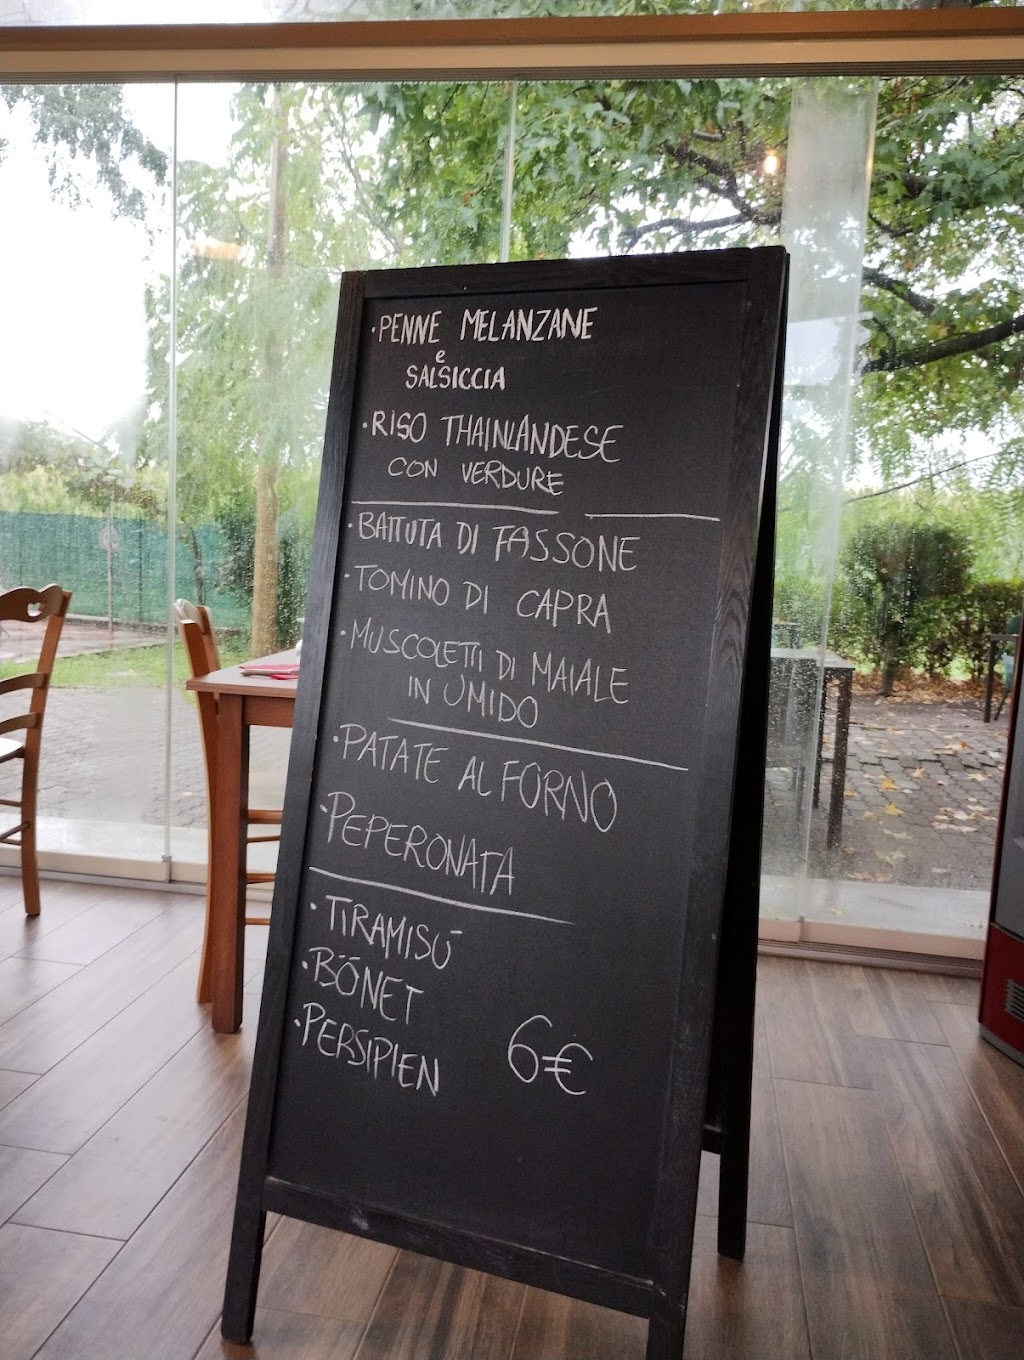 ·PENNE MELANZANE
e
SALSICCIA
·RISO THAINLANDESE
CON VERDURE
·BATTUTA DI FASSONE
·TOMINO DI CAPRA
·MUSCOLETTI DI MAIALE
IN UMIDO
·PATATE AL FORNO
·PEPERONATA
·TIRAMISÚ
·BÖNET
·PERSIPIEN
6€